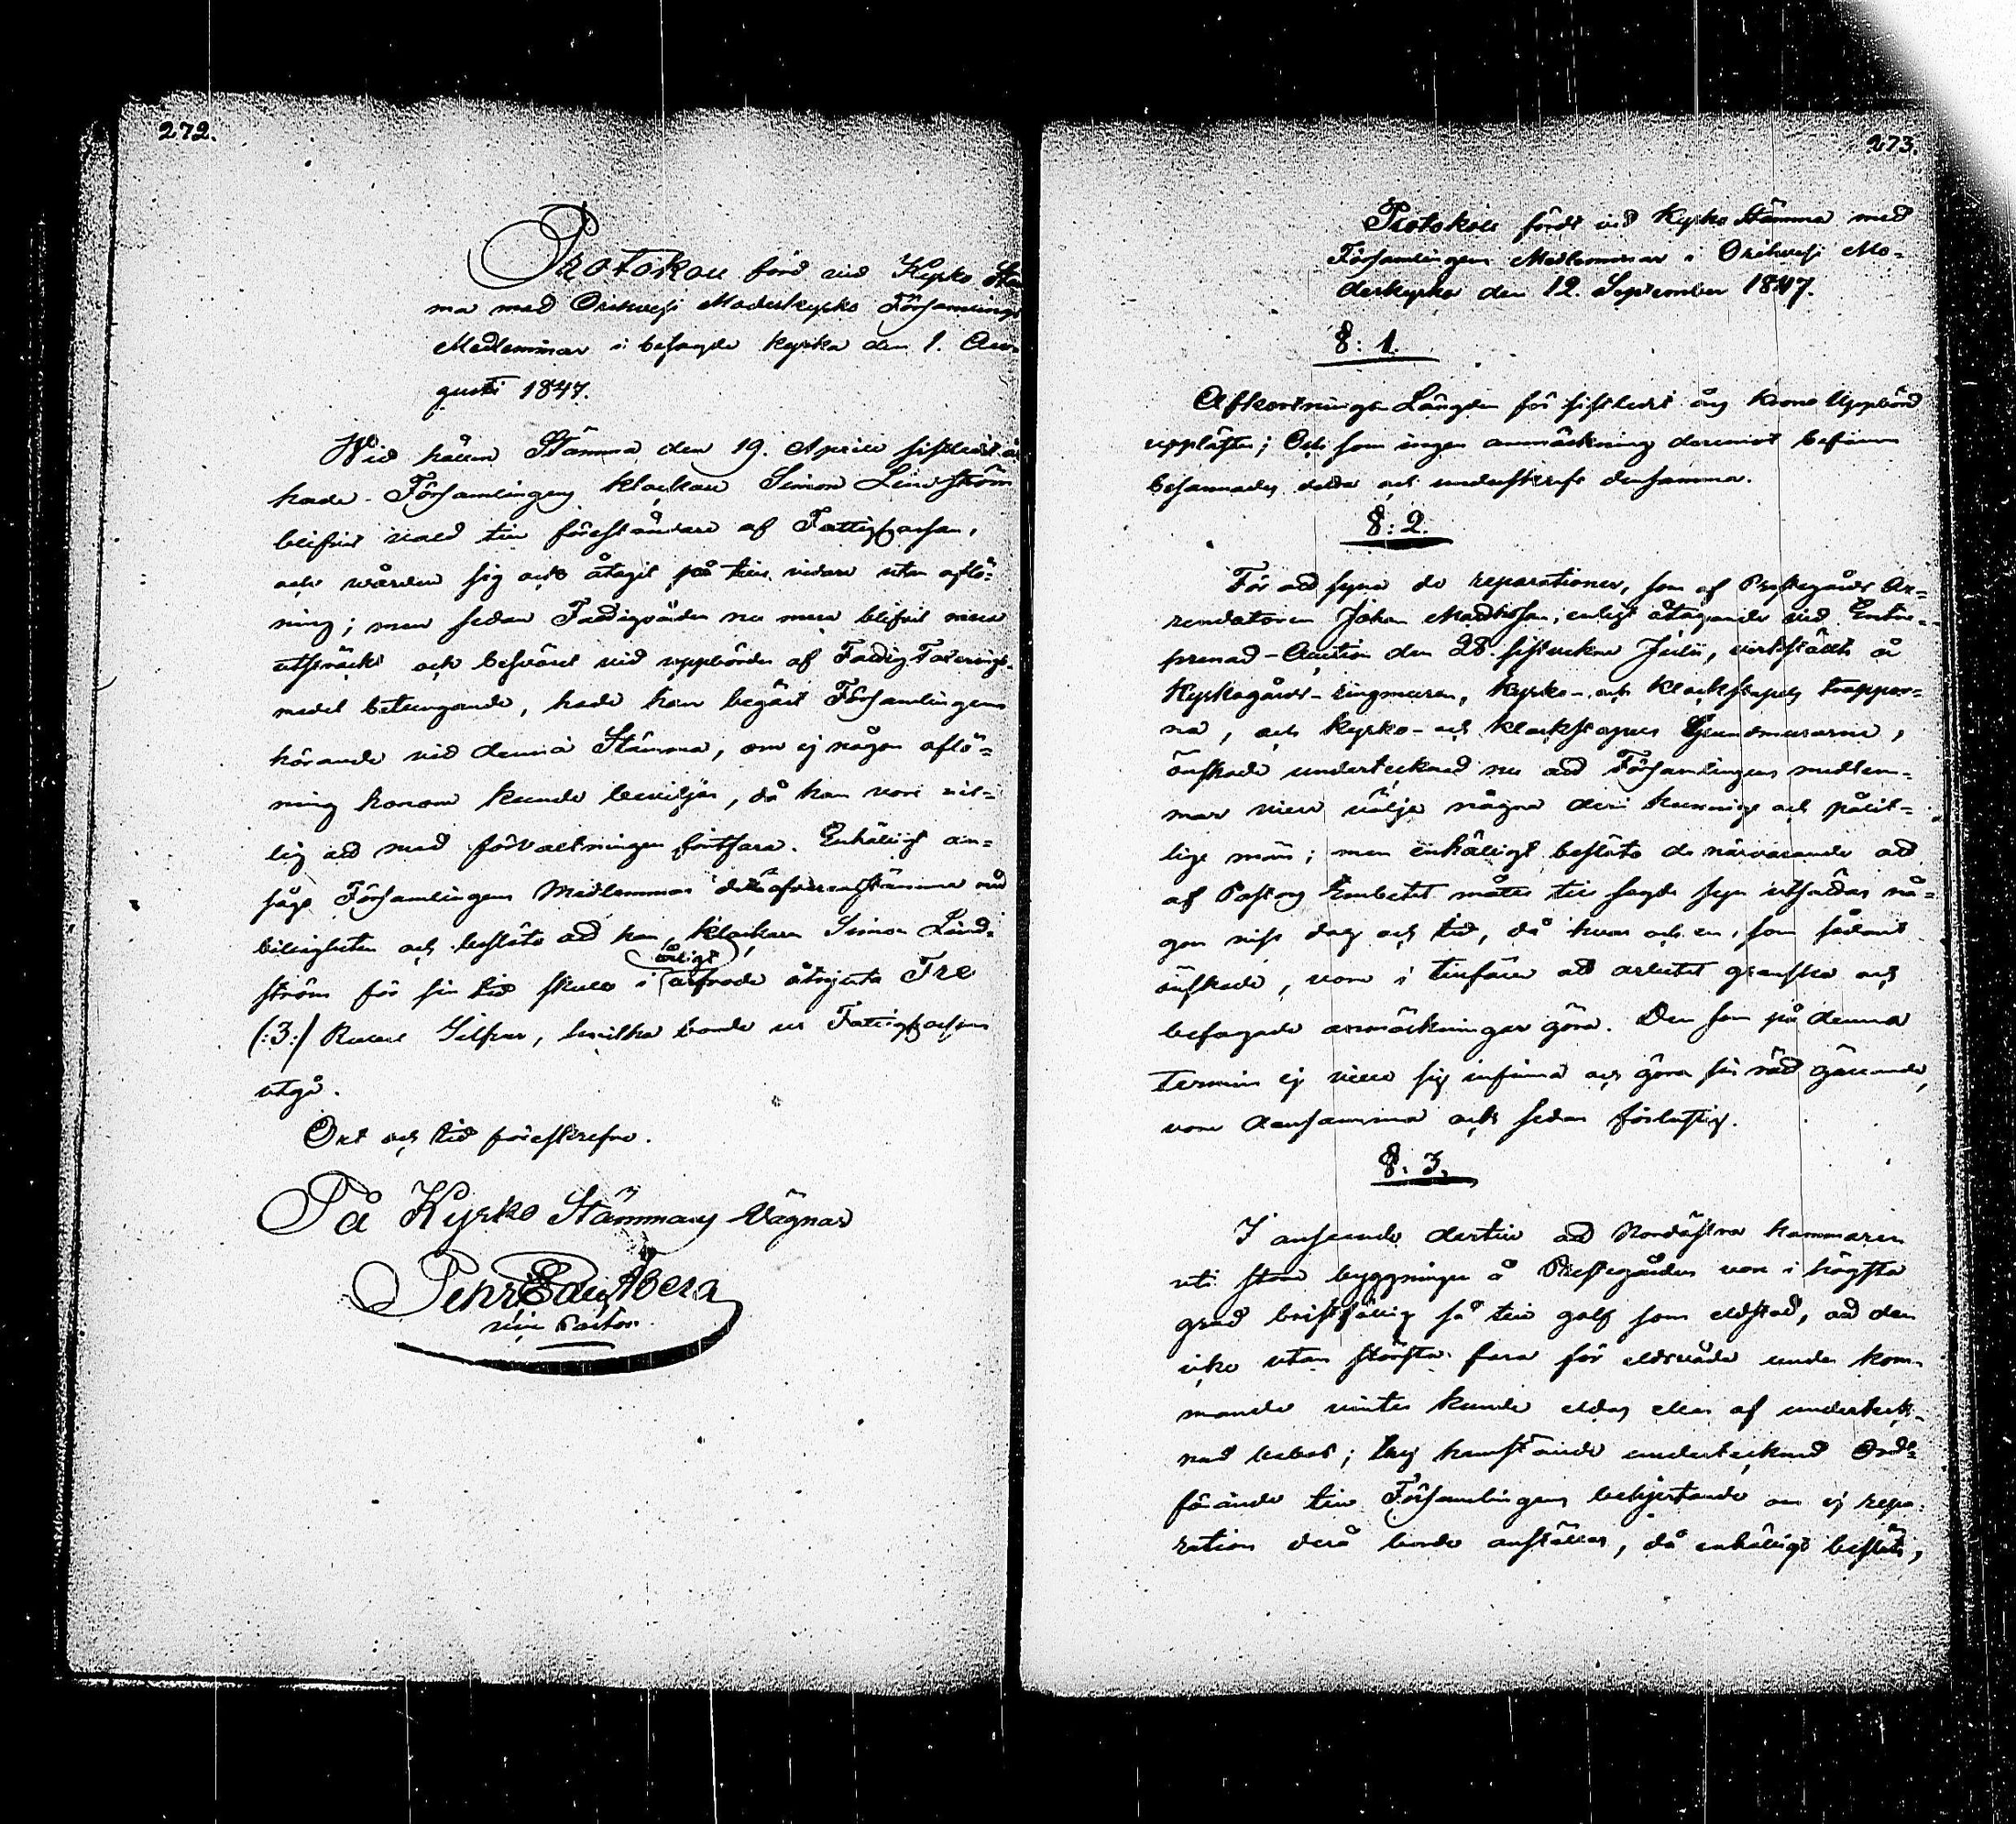 272.
Protokoll förd vid Kyrko Stäm
ma med Orihvesi Moderkyrko Församlings
Medlemmar i besagde kyrka den 1. Au-
gusti 1847.
Wid hållen Stämma den 19. Aprill sistledit år
hade Församlingens klockare Simon Lindström
blifvit vald till föreståndare af Fattigcassan,
och vården sig ock åtagit på tills vidare utan aflö-
ning; men sedan Fattigvården nu mera blifvit mera
utsträckt och besväret vid uppbörden af Fattig Taxerings-
medel betungande, hade han begärt Församlingens
hörande vid denna Stämma, om ej någon aflö-
ning honom kunde beviljas, då han vore vil-
lig att med förvaltningen fortfara. Enhälligt an-
sågo Församlingens Medlemmar detta öfverensstämma med
billigheten och beslöto att han, klockaren Simon Lind-
ström för sin tid skulle i årligt arfvode åtnjuta Tre
(:3:) Rubel Silfver, hvilka borde ur Fattigcassan
utgå.
Ort och tid föreskrefne.
På Kyrko Stämmans Vägnar
Pehr Edu. Aberg
vice Pastor.
273.
Protokoll fördt vid Kyrko Stämma med
Församlingens Medlemmar i Orihvesi Mo-
derkyrka den 12. September 1847.
§: 1.
Afkortnings Längden för sistledit års Krono Uppbörd
upplästes; Och som ingen anmärkning deremot befanns
besannades detta och underskrefs densamma.
§: 2.
För att syna de reparationer, som af Prestegårds Ar-
rendatoren Johan Mattsson, enligt åtagande vid Entre-
prenad-Auction den 28. sistvekne Julii, verkställts å
Kyrkogårds-ringmuren, Kyrko- och Klockstapels trappor-
na, och Kyrko- och Klockstapels Grundmurarne,
önskade undertecknad nu att Församlingens medlem-
mar ville välja några deri kunnige och pålit-
lige män; men enhälligt beslöto de närvarande att
af Pastors Embetet måtte till sagde syn utsättas nå-
gon viss dag och tid, då hvar och en, som sådant
önskade, vore i tillfälle att arbetet granska och
befogade anmärkningar göra. Den som på denna
termin ej ville sig infinna och göra sin rätt gällande,
vore densamma ock sedan förlustig.
§: 3.
I anseende dertill att Nordöstra kammaren
uti stora byggningen å Prestegården vore i högsta
grad bristfällig så till golf som eldstad, att den
icke utan största fara för eldsvåda under kom-
mande vinter kunde eldas eller af underteck-
nad bebos; ty hemställde undertecknad Ord-
förande till Församlingens behjertande om ej repa-
ration derå borde anställas, då enhälligt beslöts,